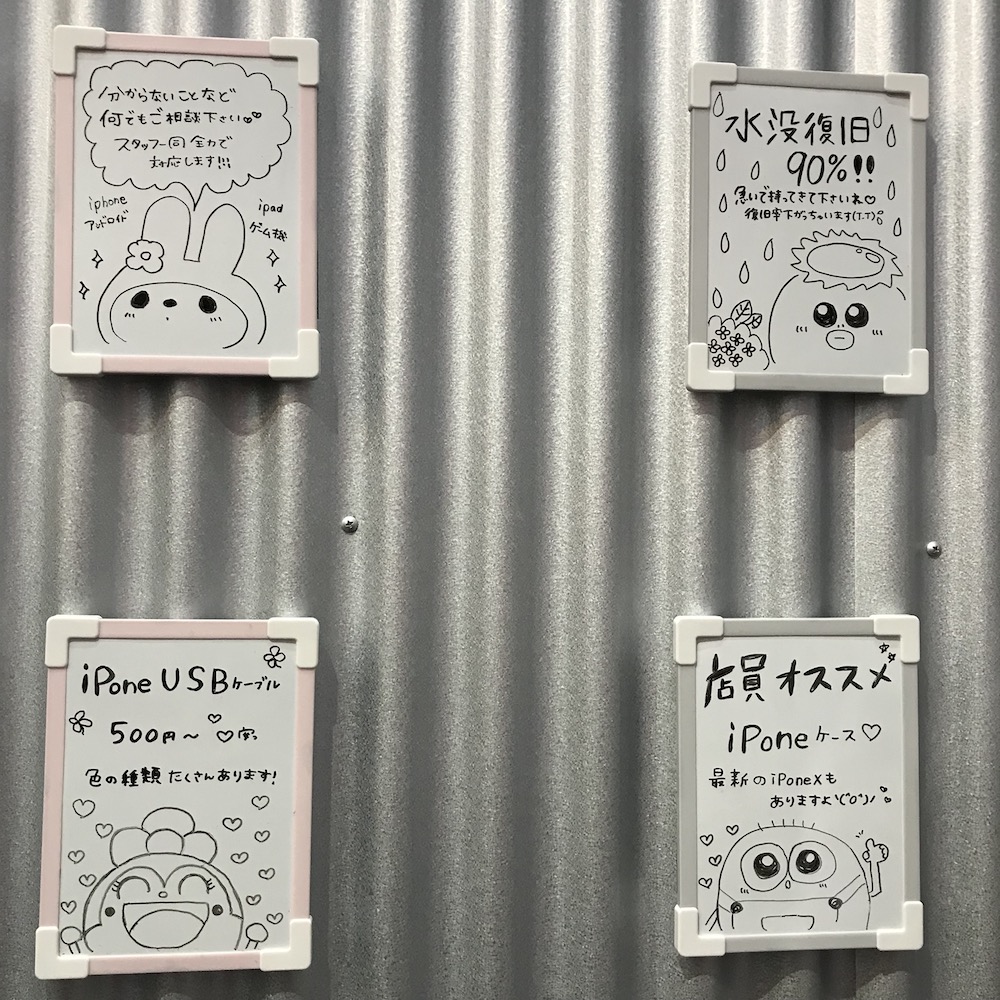 分からないことなど
何でもご相談下さい
スタッフ一同 全力で
対応します!!!
iphone
アンドロイド
ipad
ゲーム機
水没復旧
90%!!
急いで持ってきて下さいね♡
復旧率下がっちゃいます(T.T)
iPone USBケーブル
500円〜
色の種類たくさんあります!
店員オススメ
iPoneケース♡
最新のiPoneXも
ありますよ\(^o^)/